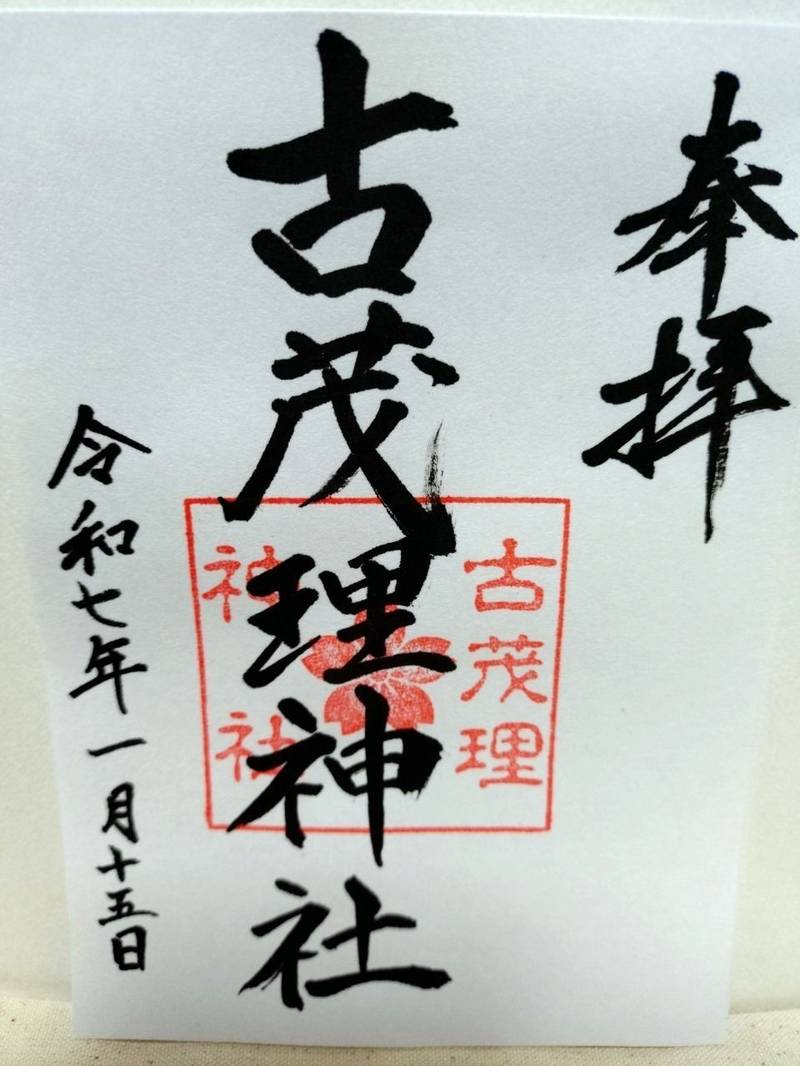 奉拝
古茂理神社
古茂理
神社
令和七年一月十五日